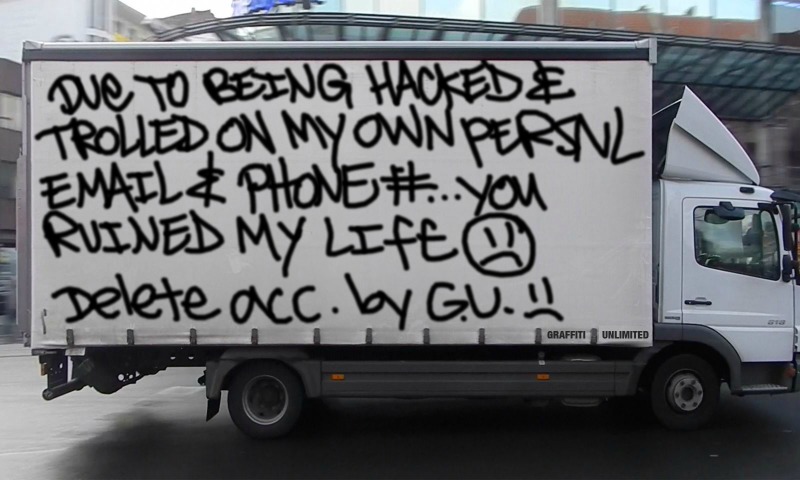 DUE TO BEING HACKED &
TROLLED ON MY OWN PERSNL
EMAIL & PHONE #...YOU
RUINED MY LIFE
Delete acc. by G.U.
GRAFFITI UNLIMITED